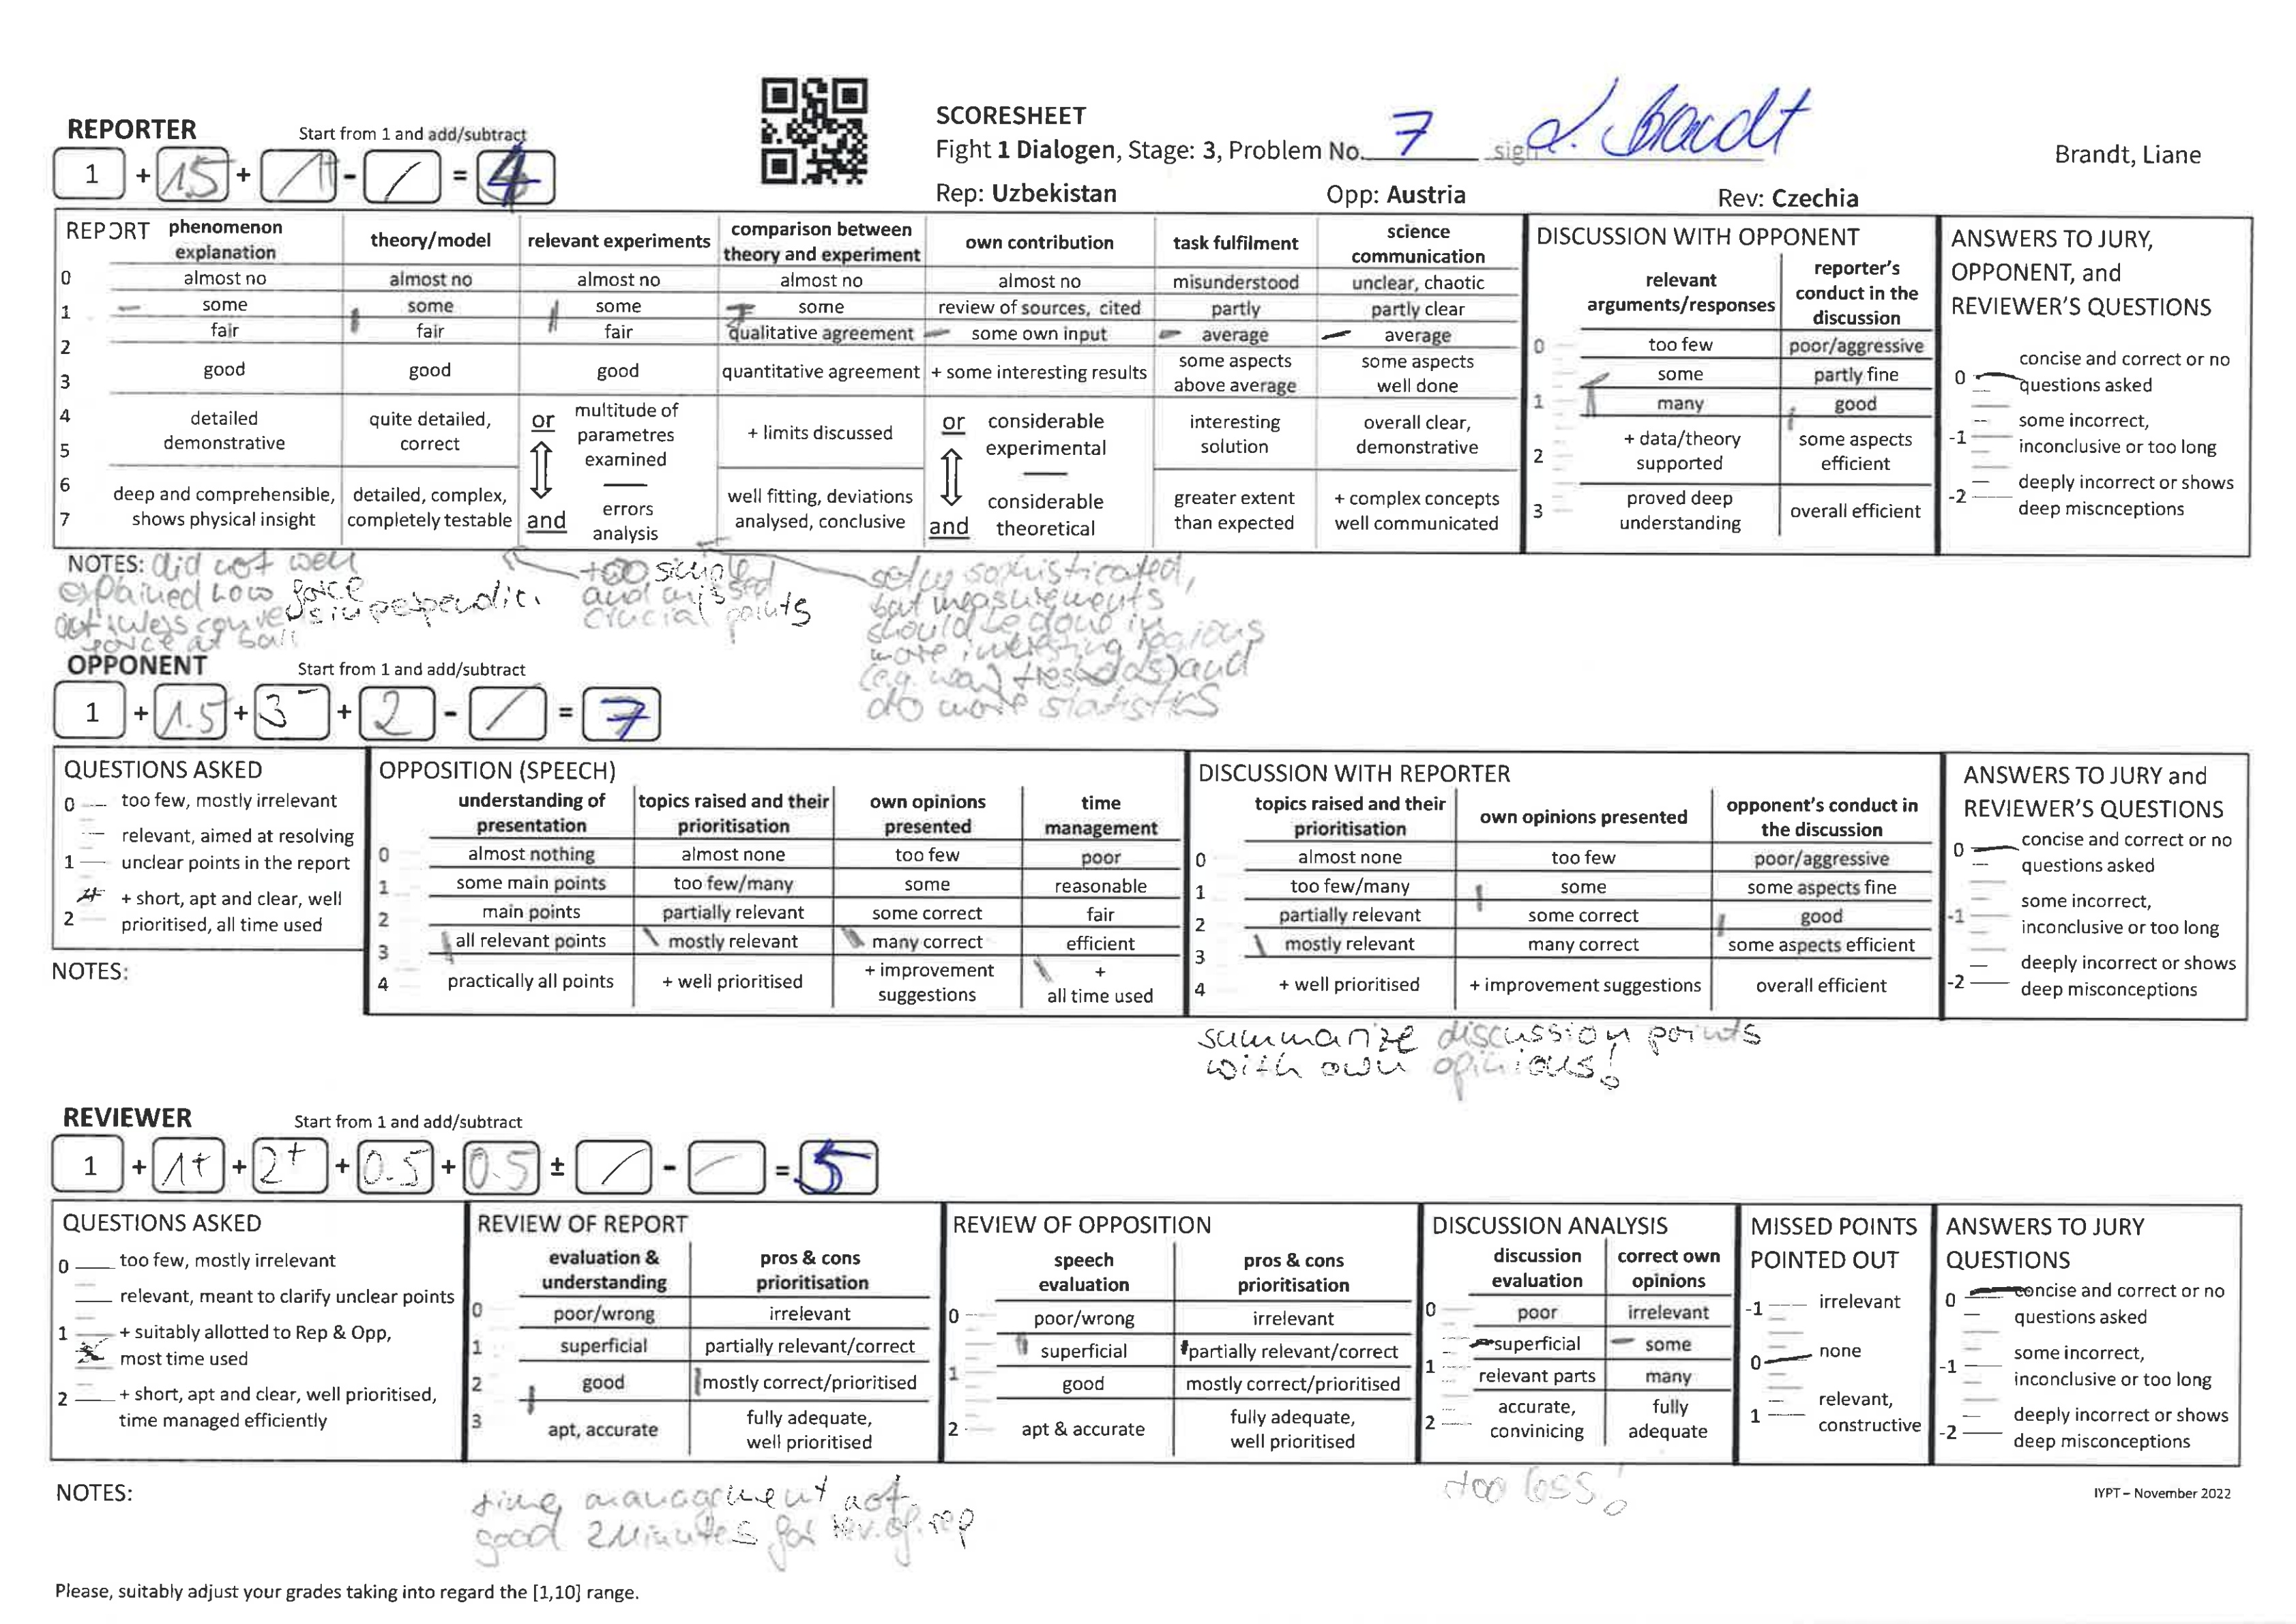 SCORESHEET
Fight 1 Dialogen, Stage: 3, Problem No. 7 sign L. Brandt
Brandt, Liane
Rep: Uzbekistan Opp: Austria Rev: Czechia
REPORTER Start from 1 and add/subtract
1 + 15 + - / = 4
REPORT phenomenon explanation theory/model relevant experiments comparison between theory and experiment own contribution task fulfilment science communication
0 almost no almost no almost no almost no almost no misunderstood unclear, chaotic
1 some some some some review of sources, cited partly partly clear
fair fair fair qualitative agreement some own input average average
2
3 good good good quantitative agreement + some interesting results some aspects above average some aspects well done
4 detailed demonstrative quite detailed, correct or multitude of parametres examined + limits discussed or considerable experimental interesting solution overall clear, demonstrative
5
6 deep and comprehensible, shows physical insight detailed, complex, completely testable and errors analysis well fitting, deviations analysed, conclusive and considerable theoretical greater extent than expected + complex concepts well communicated
7
DISCUSSION WITH OPPONENT
relevant arguments/responses reporter's conduct in the discussion
0 too few poor/aggressive
some partly fine
1 many good
2 + data/theory supported some aspects efficient
3 proved deep understanding overall efficient
ANSWERS TO JURY, OPPONENT, and REVIEWER'S QUESTIONS
0 concise and correct or no questions asked
-1 some incorrect, inconclusive or too long
-2 deeply incorrect or shows deep miscnceptions
NOTES: did not well
explained how force
force at ball
too simple
and missed
crucial points
setup sophisticated,
but measurements
should be done in
more interesting regions
and
do more statistics
OPPONENT Start from 1 and add/subtract
1 + 1.5 + 3- + 2 - / = 7
QUESTIONS ASKED
0 too few, mostly irrelevant
relevant, aimed at resolving
1 unclear points in the report
+ short, apt and clear, well
2 prioritised, all time used
NOTES:
OPPOSITION (SPEECH)
understanding of presentation topics raised and their prioritisation own opinions presented time management
0 almost nothing almost none too few poor
1 some main points too few/many some reasonable
2 main points partially relevant some correct fair
3 all relevant points mostly relevant many correct efficient
4 practically all points + well prioritised + improvement suggestions + all time used
DISCUSSION WITH REPORTER
topics raised and their prioritisation own opinions presented opponent's conduct in the discussion
0 almost none too few poor/aggressive
1 too few/many some some aspects fine
2 partially relevant some correct good
3 mostly relevant many correct some aspects efficient
4 + well prioritised + improvement suggestions overall efficient
ANSWERS TO JURY and REVIEWER'S QUESTIONS
0 concise and correct or no questions asked
-1 some incorrect, inconclusive or too long
-2 deeply incorrect or shows deep misconceptions
summarize discussion points
with own opinions!
REVIEWER Start from 1 and add/subtract
1 + 1+ + 2+ + 0.5 + 0.5 ± / - / = 5
QUESTIONS ASKED
0 too few, mostly irrelevant
relevant, meant to clarify unclear points
1 + suitably allotted to Rep & Opp,
most time used
2 + short, apt and clear, well prioritised,
time managed efficiently
REVIEW OF REPORT
evaluation & understanding pros & cons prioritisation
0 poor/wrong irrelevant
1 superficial partially relevant/correct
2 good mostly correct/prioritised
3 apt, accurate fully adequate, well prioritised
REVIEW OF OPPOSITION
speech evaluation pros & cons prioritisation
0 poor/wrong irrelevant
superficial partially relevant/correct
1 good mostly correct/prioritised
2 apt & accurate fully adequate, well prioritised
DISCUSSION ANALYSIS
discussion evaluation correct own opinions
0 poor irrelevant
superficial some
1 relevant parts many
2 accurate, convinicing fully adequate
MISSED POINTS POINTED OUT
-1 irrelevant
0 none
1 relevant, constructive
ANSWERS TO JURY QUESTIONS
0 concise and correct or no questions asked
-1 some incorrect, inconclusive or too long
-2 deeply incorrect or shows deep misconceptions
NOTES:
time management not
good 2 Minutes for Rev. of. rep
too less!
IYPT – November 2022
Please, suitably adjust your grades taking into regard the [1,10] range.